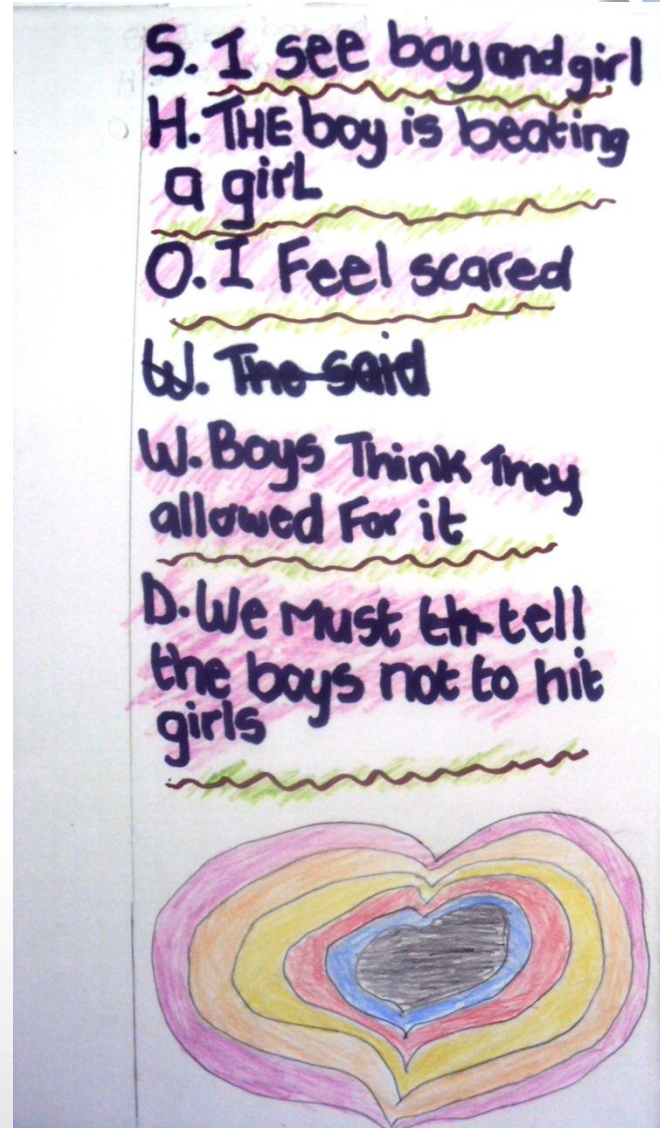 S. I see boy and girl
H. THE boy is beating
a girl
O. I Feel scared
W. The said
W. Boys Think They
allowed For it
D. We Must th tell
the boys not to hit
girls